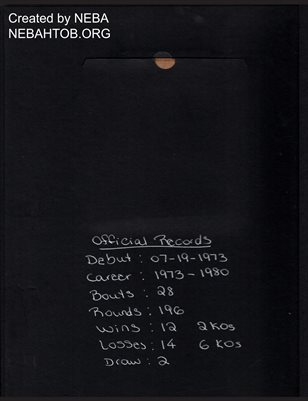 Created by NEBA
NEBAHTOB.ORG
Official Records
Debut : 07-19-1973
Career : 1973 - 1980
Bouts : 28
Rounds : 196
Wins : 12 2 KOs
Losses : 14 6 KOs
Draw : 2